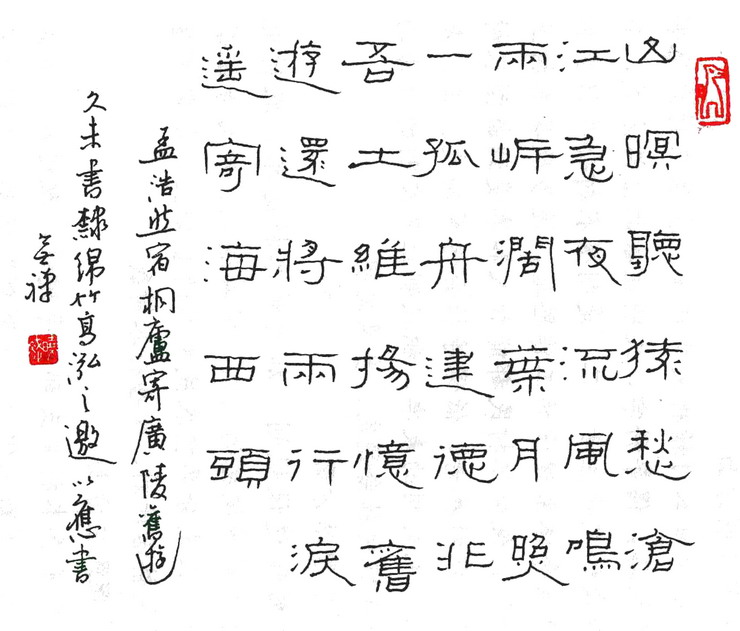 山暝聽猿愁滄
江急夜流風鳴
兩岸闊葉月照
一孤舟建德非
吾土維揚憶舊
遊還將兩行淚
遥寄海西頭
孟浩然宿桐廬寄廣陵舊遊
久未書隸綿竹高泓之邀以應書